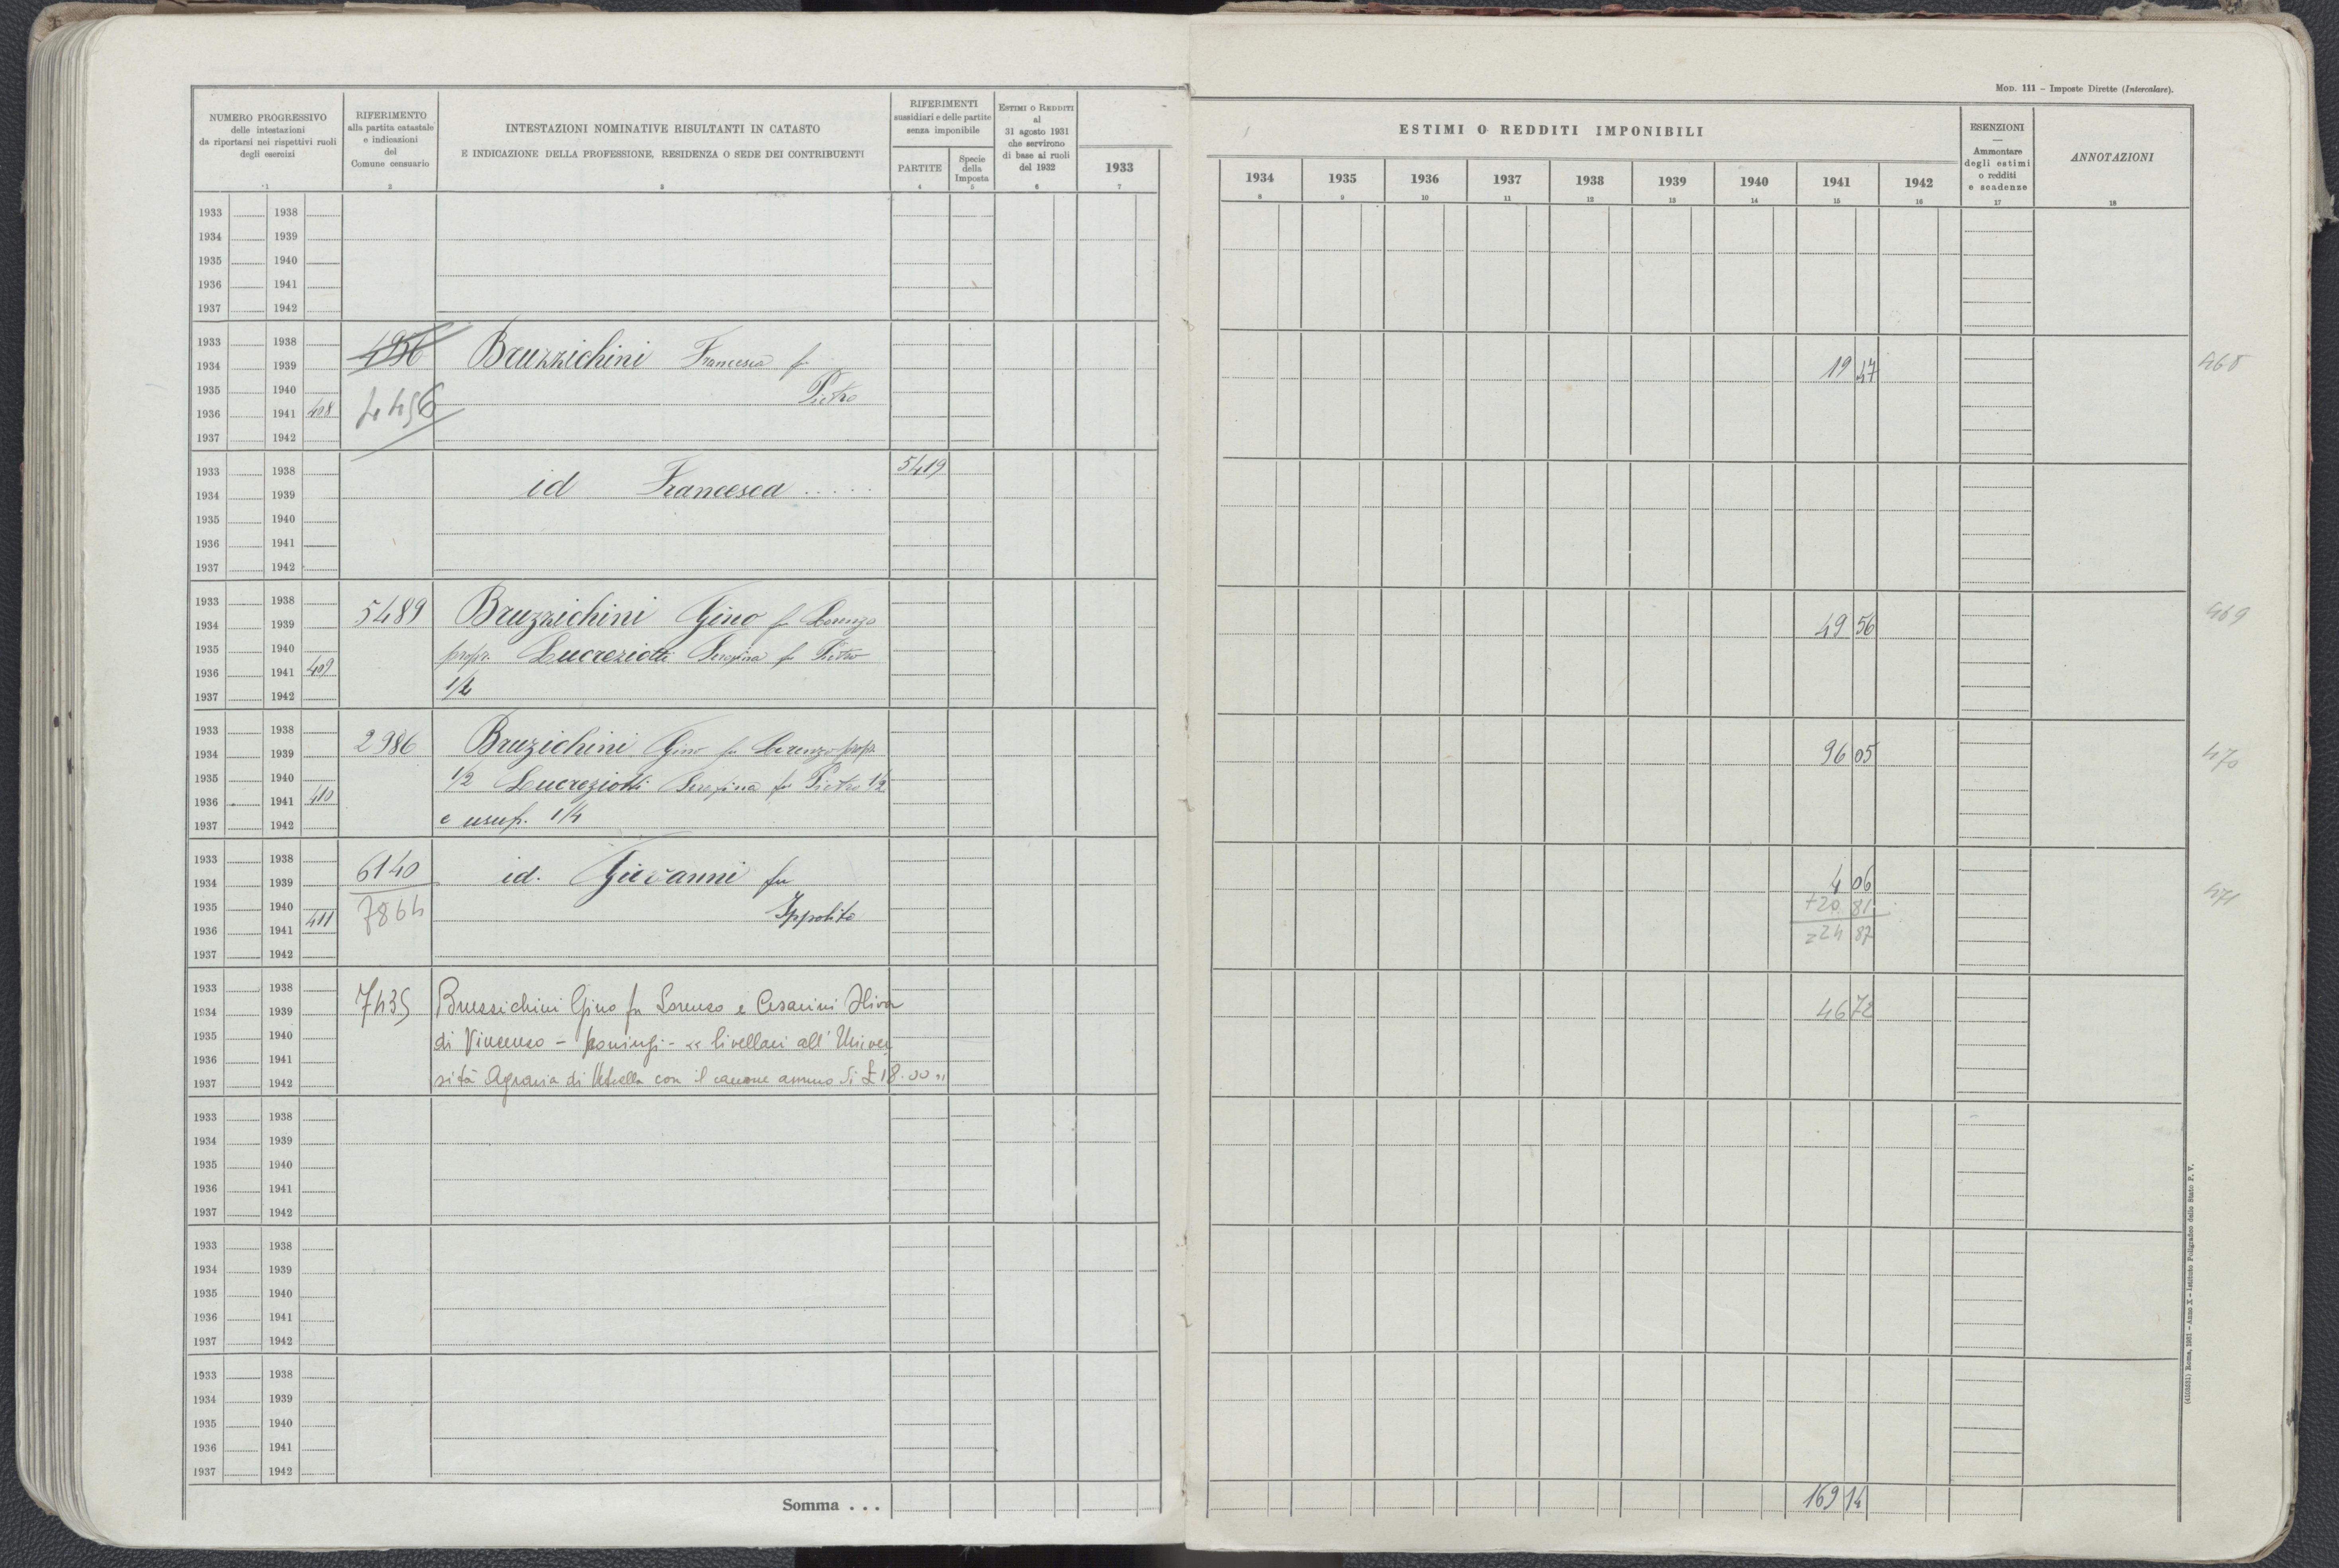 MOD. 111 – Imposte Dirette (Intercalare).
NUMERO PROGRESSIVO
delle intestazioni
da riportarsi nei rispettivi ruoli
degli esercizi
1
RIFERIMENTO
alla partita catastale
e indicazioni
del
Comune censuario
2
INTESTAZIONI NOMINATIVE RISULTANTI IN CATASTO
E INDICAZIONE DELLA PROFESSIONE, RESIDENZA O SEDE DEI CONTRIBUENTI
3
RIFERIMENTI
sussidiari e delle partite
senza imponibile
PARTITE
4
Specie
della
Imposta
5
ESTIMI O REDDITI
al
31 agosto 1931
che servirono
di base ai ruoli
del 1932
6
1933
7
ESTIMI O REDDITI IMPONIBILI
1934 1935 1936 1937 1938 1939 1940 1941 1942
8 9 10 11 12 13 14 15 16
ESENZIONI
—
Ammontare
degli estimi
o redditi
e scadenze
17
ANNOTAZIONI
18
1933 1938
1934 1939
1935 1940
1936 1941
1937 1942
1933 1938
1934 1939 Bruzzichini Francesca fu 19 47 468
1935 1940 Pietro
1936 1941 408 4456
1937 1942
1933 1938 5419
1934 1939 id Francesca .....
1935 1940
1936 1941
1937 1942
1933 1938
1934 1939 5489 Bruzzichini Gino fu Lorenzo 49 56 469
1935 1940 propr. Lucreziotti Serafina fu Pietro
1936 1941 409
1937 1942
1933 1938
1934 1939 2986 Bruzichini Gino fu Lorenzo propr. 96 05 470
1935 1940 1/2 Lucreziotti Serafina fu Pietro 1/2
1936 1941 410
1937 1942 e usuf. 1/4
1933 1938
1934 1939 6140 id. Giovanni fu 4 06 471
1935 1940 7864 Ippolito +20 81
1936 1941 411 =24 87
1937 1942
1933 1938
1934 1939 7435 Bruzzichini Gino fu Lorenzo e Cesarini Iliva 46 72
1935 1940 di Vincenzo – coniugi – " livellari all'Univer
1936 1941
1937 1942 sità Agraria di Vetralla con il canone annuo di £ 18.00 "
1933 1938
1934 1939
1935 1940
1936 1941
1937 1942
1933 1938
1934 1939
1935 1940
1936 1941
1937 1942
1933 1938
1934 1939
1935 1940
1936 1941
1937 1942
Somma ... 169 14
(4103531) Roma, 1931 – Anno X – Istituto Poligrafico dello Stato P. V.